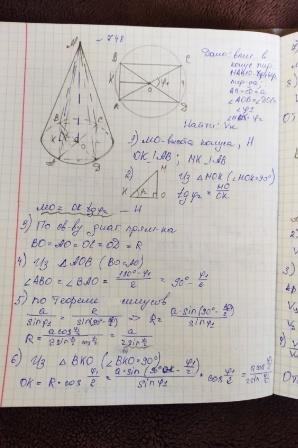 №748
Дано: впис. в
конус пир.
MABCD - четыр.
пир-да;
∠AOB = ∠DOC
= φ₁
Найти: Vк
1) MO - высота конуса, H
OK ⊥ AB; MK ⊥ AB
2)
Из △MOK (∠MOK=90°)
tg φ₂ = MO/OK
MO = OK tg φ₂ = H
3) По св-ву диаг. прям-ка
BO = AO = OC = OD = R
4) Из △AOB (BO = AO)
∠ABO = ∠BAO = (180° - φ₁)/2 = 90° - φ₁/2
5) по теореме синусов
a/sin φ₁ = R/sin(90° - φ₁/2) => R = a·sin(90° - φ₁/2)/sin φ₁
R = a cos φ₁/2 / 2 sin φ₁/2 cos φ₁/2 = a / 2 sin φ₁/2
6) Из △BKO (∠BKO = 90°)
OK = R · cos φ₁/2 = a·sin(90° - φ₁/2)/sin φ₁ · cos φ₁/2